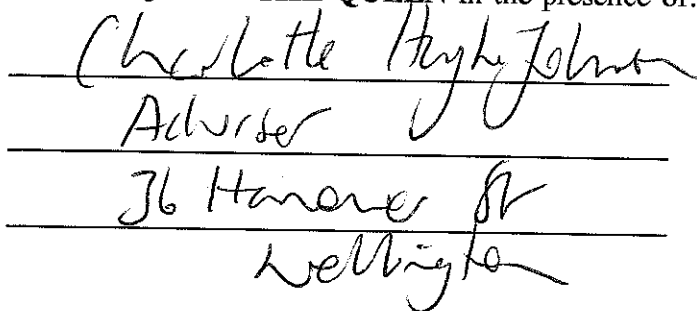 THE QUEEN in the presence of:
Charlotte Hughes Johnston
Adviser
36 Hanover St
Wellington